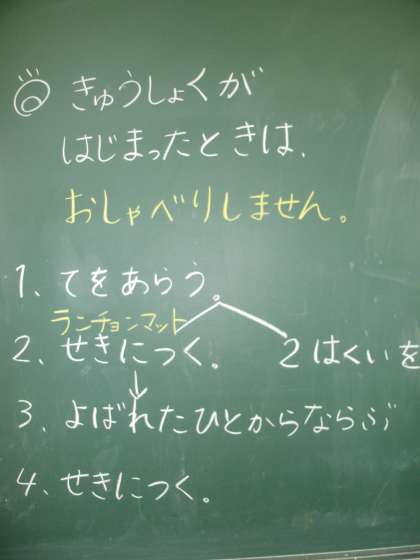 ◎ きゅうしょくが
はじまったときは、
おしゃべりしません。
1、てをあらう。
ランチョンマット
2、せきにつく。 2はくいを
3、よばれたひとからならぶ
4、せきにつく。